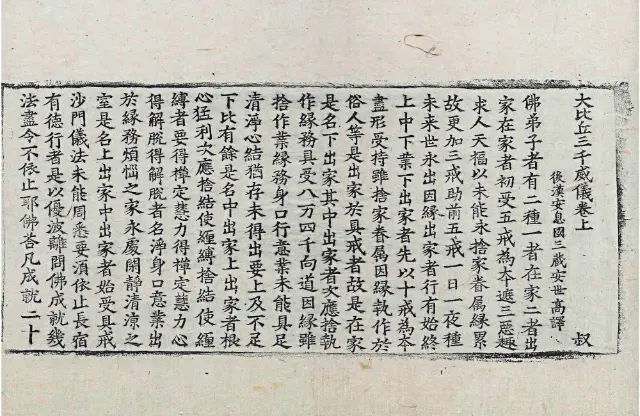 大比丘三千威儀卷上 叔
後漢安息國三藏安世高譯
佛弟子者有二種一者在家二者出
家在家者初受五戒為本遮三惡趣
求人天福以未能永捨家眷属緣累
故更加三戒助前五戒一日一夜種
未来世永出因緣出家者行有始終
上中下業下出家者先以十戒為本
盡形受持雖捨家眷属因緣執作於
俗人等是出家於具戒者故是在家
是名下出家其中出家者次應捨執
作緣務具受八万四千向道因緣雖
捨作業緣務身口行意業未能具足
清淨心結猶存未得出要上及不足
下比有餘是名中出家上出家者根
心猛利次應捨結使纏縛捨結使纏
縛者要得禪定慧力得禪定慧力心
得解脫得解脫者名淨身口意業出
於緣務煩惱之家永處閑靜清涼之
室是名上出家中出家者始受具戒
沙門儀法未能周悉要湏依止長宿
有德行者是以優波離問佛成就幾
法盡令不依止耶佛荅凡成就二十